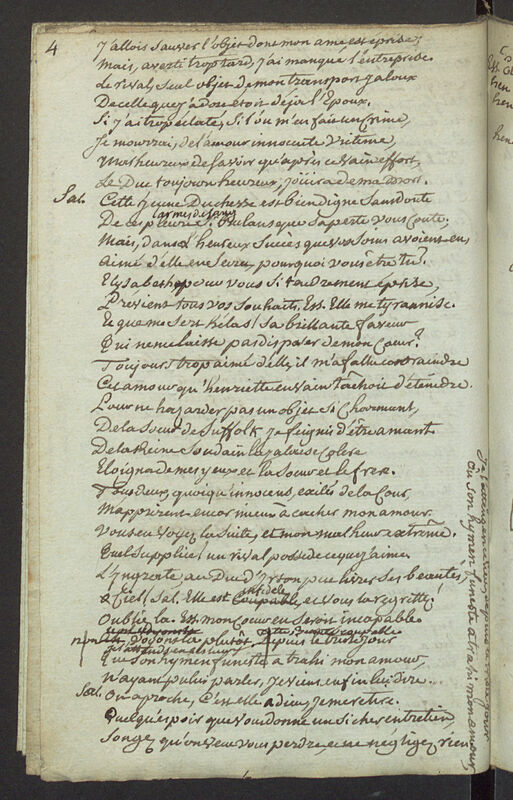 4
J'allois sauver l'objet dont mon ame est eprise,
Mais, averti trop tard, j'ai manqué l'entreprise.
Le rival, seul objet de mon transport jaloux
De celle que j'adore étoit déja l'Epoux.
Si j'ai trop eclaté, si l'on m'en fait un crime,
Je mourrai, de l'amour innocente victime,
Malheureux de savoir qu'après ce vain effort,
Le Duc toujours heureux, jouira de ma mort.
Sal. Cette jeune Duchesse est bien digne sans doute
De ces pleurs, larmes de sang que sa perte vous coute.
Mais, dans l'heureux succès que vos soins avoient eu,
Aimé d'elle en secret, pourquoi vous être tu?
Elysabeth pour vous si tendrement éprise,
Previent tous vos souhaits. Ess. Elle me tyrannise.
Et que me sert helas! sa brillante faveur
Qui ne me laisse pas disposer de mon Coeur?
Toujours trop aimé d'elle, il m'a fallu contraindre
Cet amour qu'henriette en vain tâchoit d'éteindre.
Pour ne hazarder pas un objet si charmant,
De la Soeur de Suffolk je feignis d'être amant
De la Reine soudain la jalouse Colere
Eloigna de mes yeux et la Soeur et le frere.
Tous deux, quoiqu'innocens, exilés de la Cour,
M'apprirent encor mieux à cacher mon amour.
Vous en voyez la suite, et mon malheur extrême.
Quel supplice! un rival possede ce que j'aime
L'Ingrate au Duc d'Yrton pu livrer ses beautés,
O Ciel! Sal. Elle est Coupable infidele et vous la regrettez!
Oublie la. Ess. mon Coeur en seroit incapable
non, voyons la plutôt. depuis le triste jour
Que son hymen funeste a trahi mon amour,
N'ayant pu lui parler, je viens enfin lui dire...
Sal. On aproche, C'est elle, adieu, je me retire.
Quelque poir que vous donne un si cher entretien,
Songez qu'on veut vous perdre, et ne négligez rien
Ou son hymen funeste a trahi mon amour